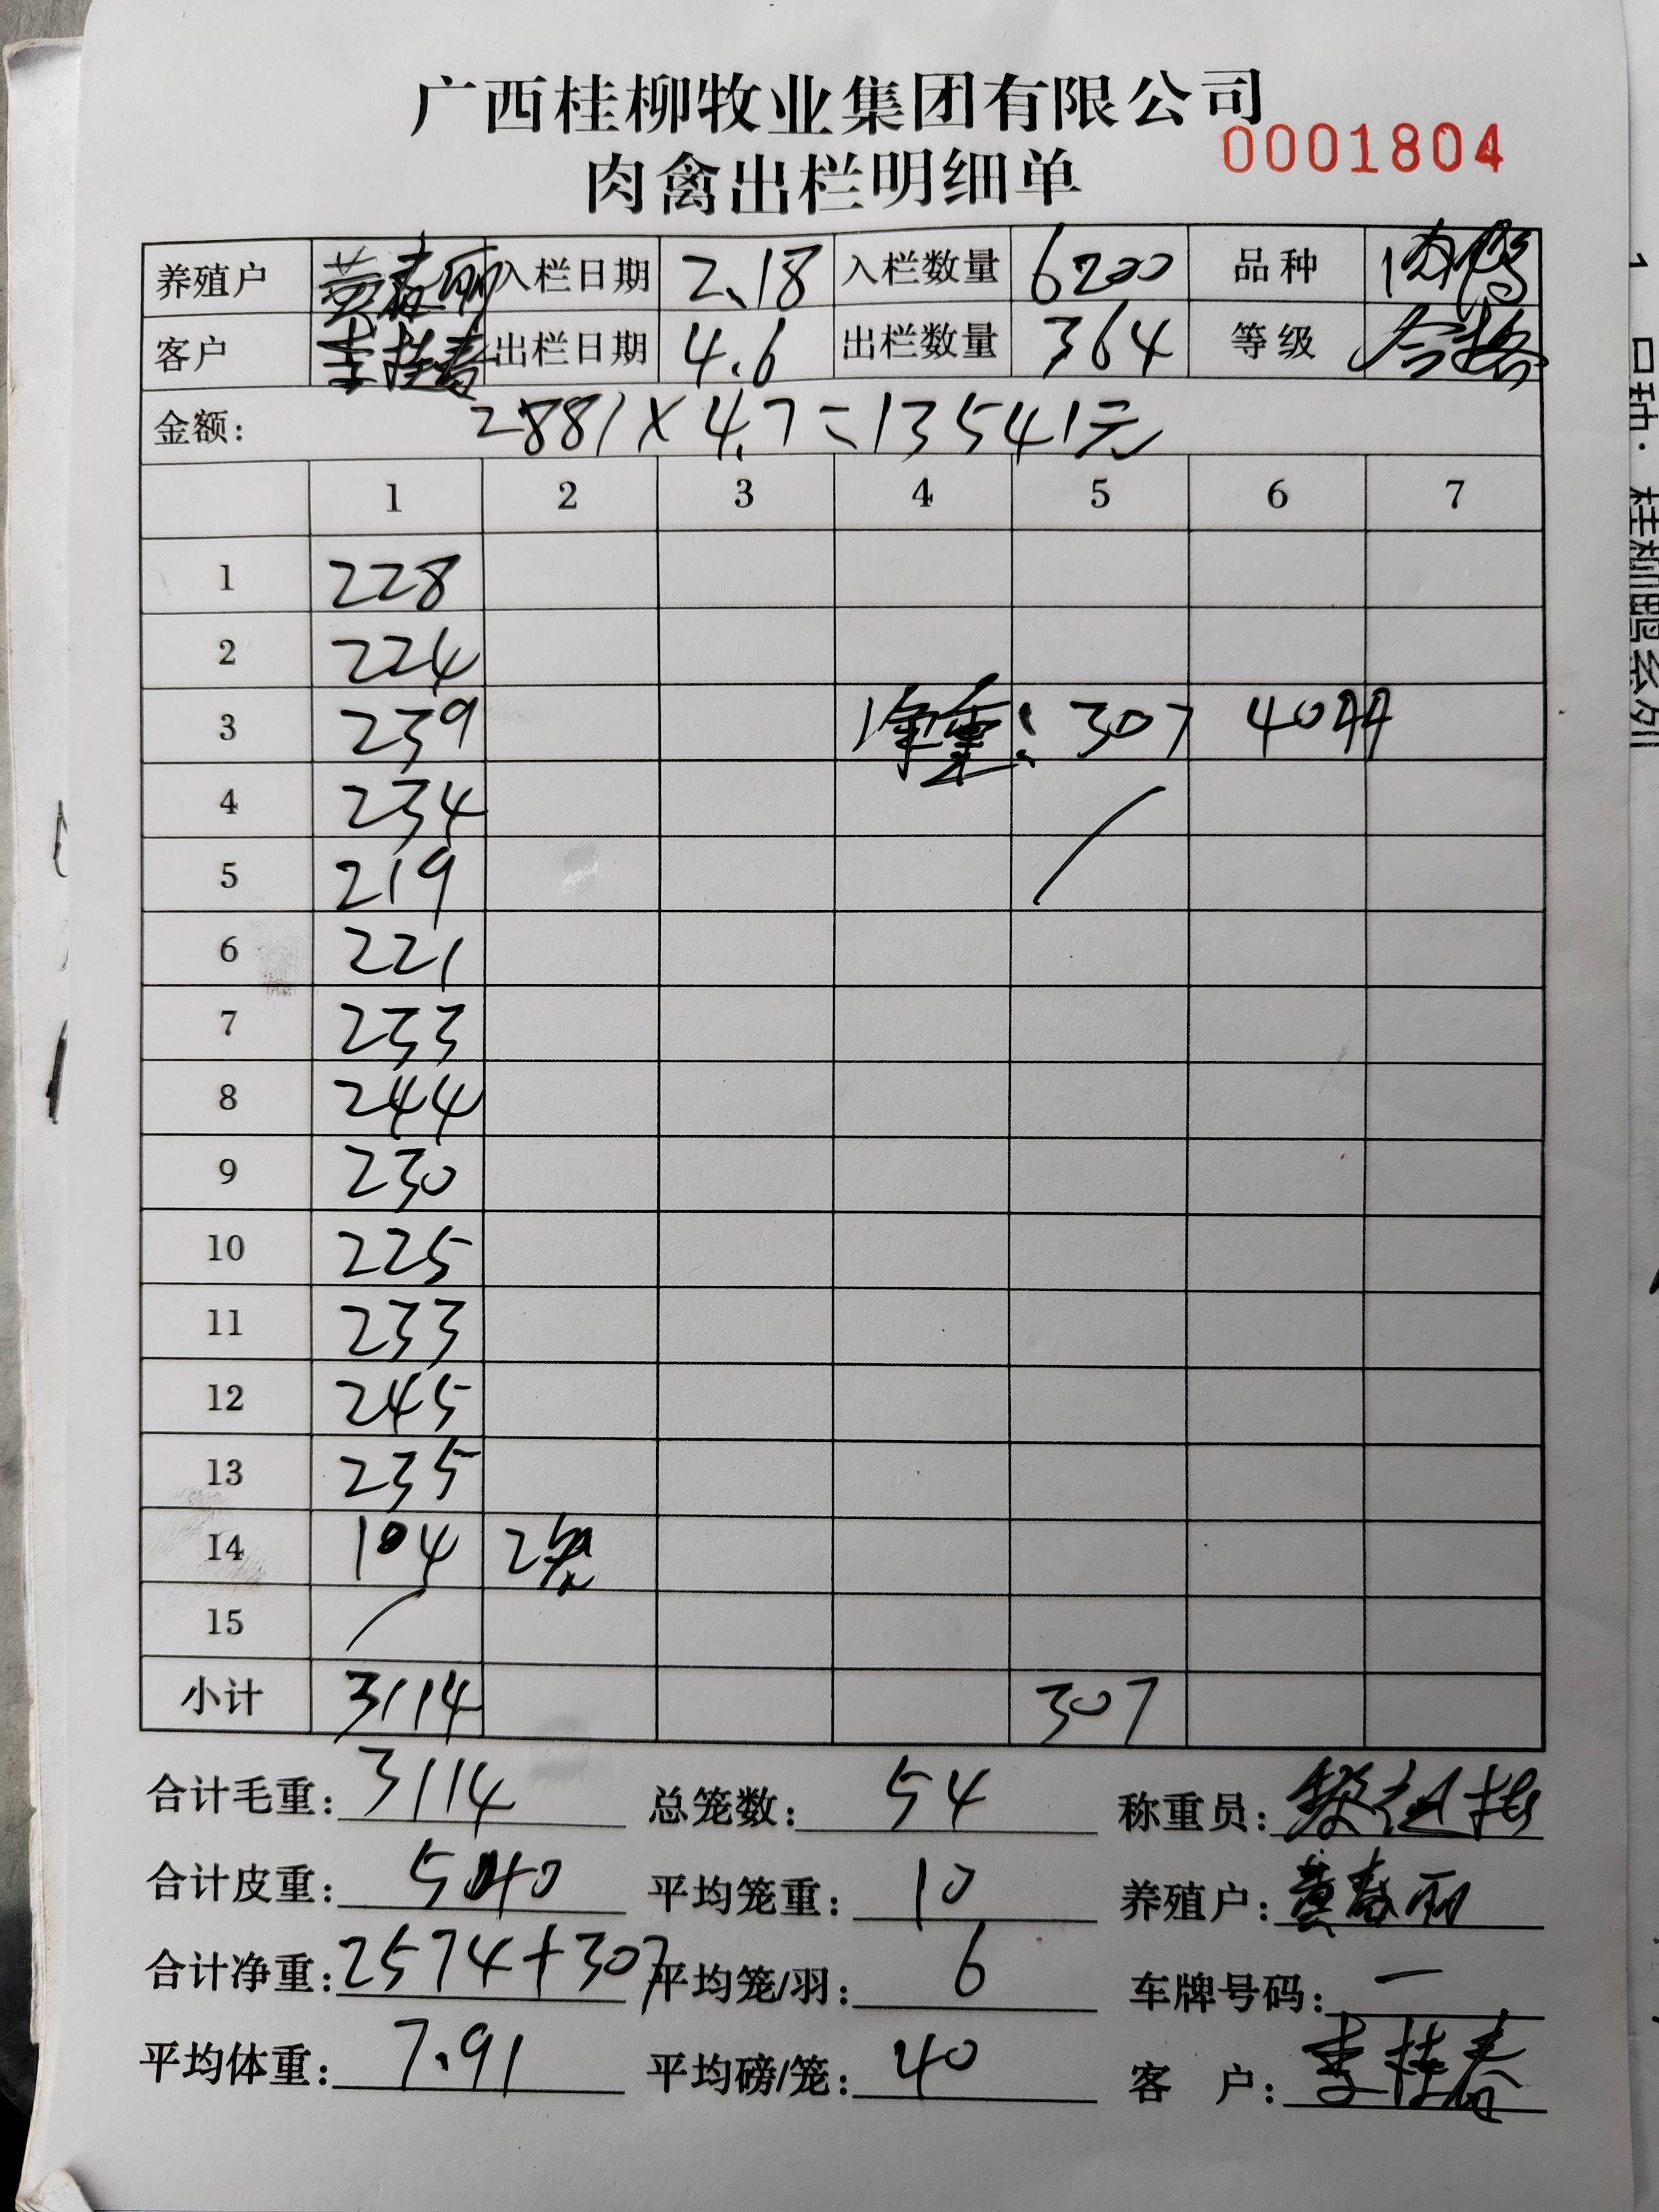 广西桂柳牧业集团有限公司
0001804
肉禽出栏明细单
养殖户 黄春丽 入栏日期 2.18 入栏数量 6200 品种 肉鸭
客户 李桂春 出栏日期 4.6 出栏数量 364 等级 合格
金额: 2881×4.7=13541元
1 2 3 4 5 6 7
1 228
2 224
3 239 净重: 307 40只
4 234
5 219
6 221
7 233
8 244
9 230
10 225
11 233
12 245
13 235
14 104 2笼
15
小计 3114 307
合计毛重: 3114 总笼数: 54 称重员:
合计皮重: 540 平均笼重: 10 养殖户: 黄春丽
合计净重: 2574+307 平均笼/羽: 6 车牌号码: 一
平均体重: 7.91 平均磅/笼: 40 客 户: 李桂春
品种: 桂柳鸭系列